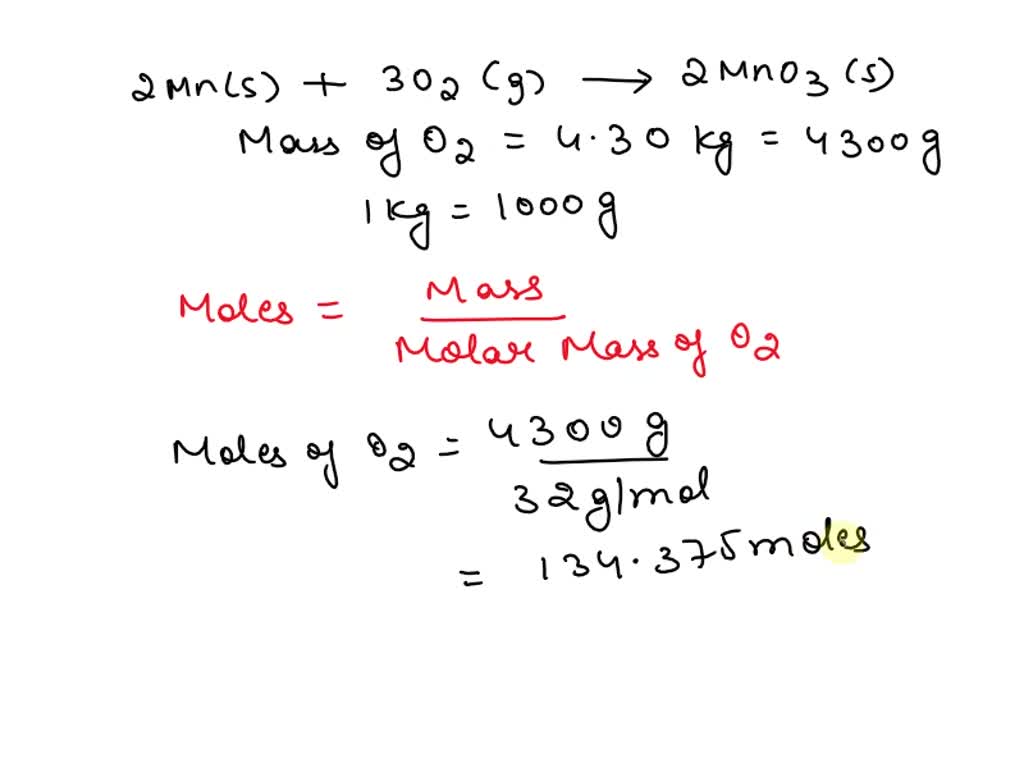 2Mn(s) + 3O2 (g) → 2MnO3 (s)
Mass of O2 = 4.30 kg = 4300 g
1 kg = 1000 g
Moles = Mass
Molar Mass of O2
Moles of O2 = 4300 g
32 g/mol
= 134.375 moles